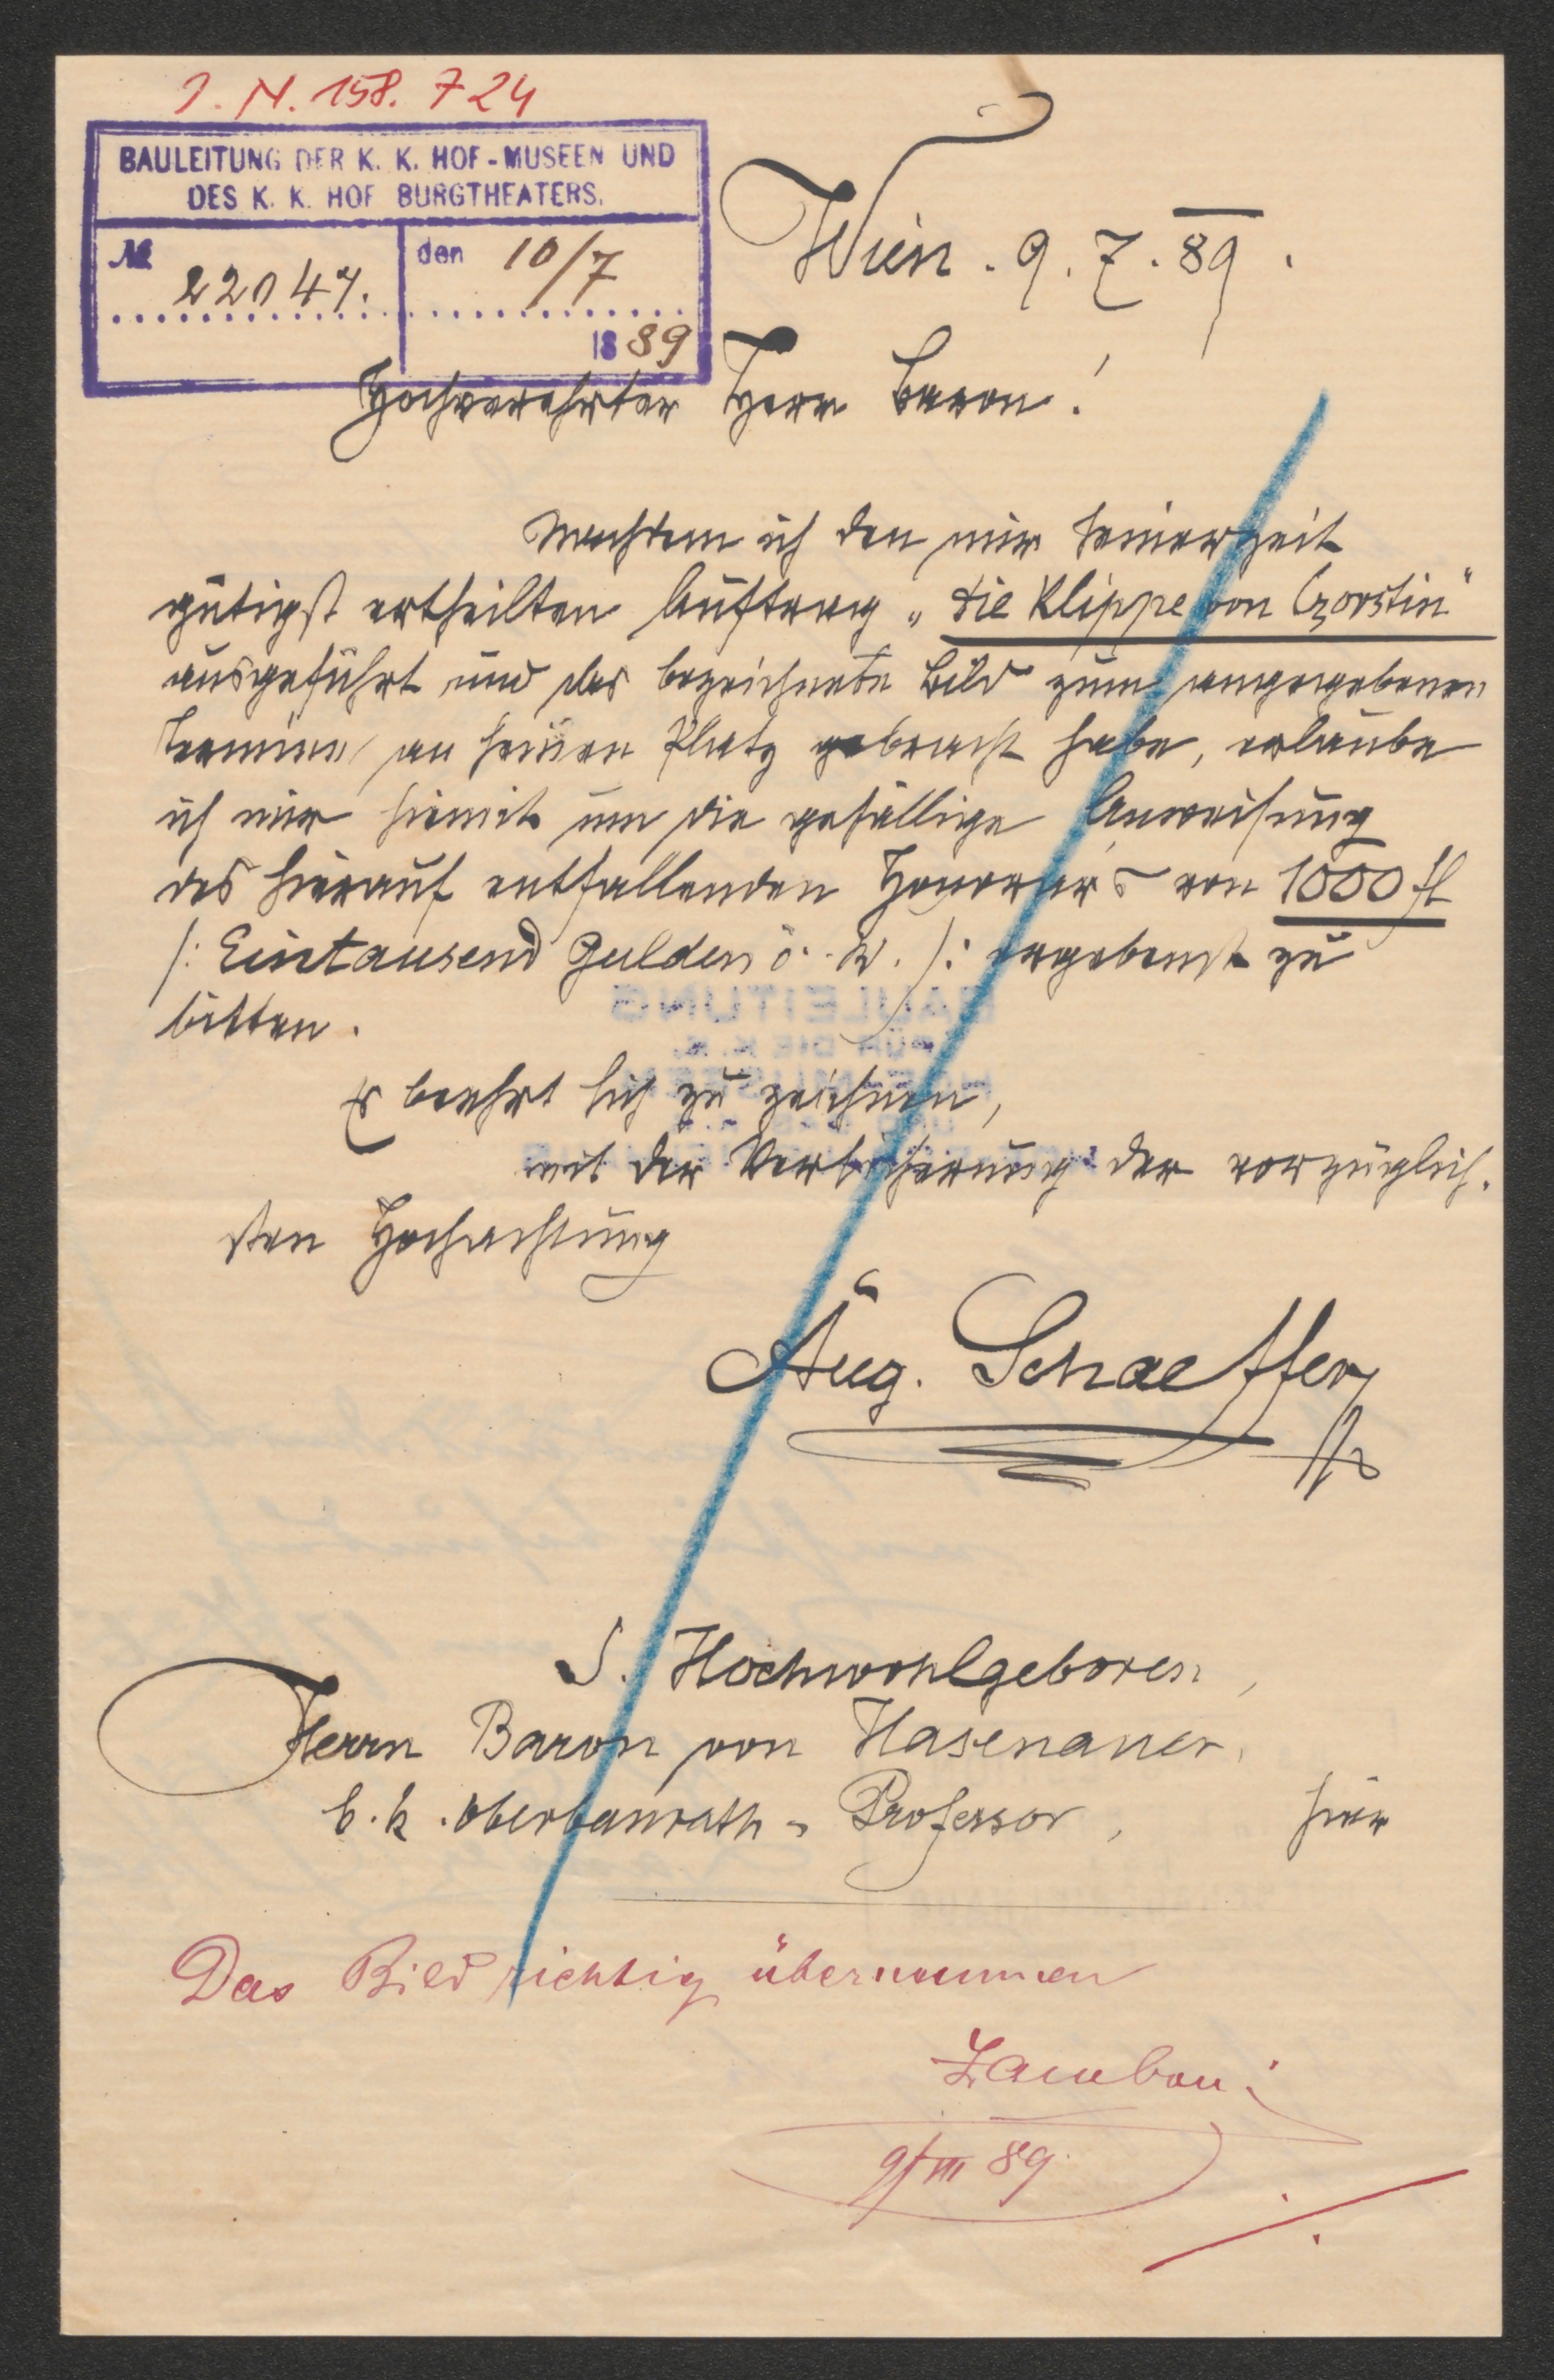 J. N. 158.724
BAULEITUNG DER K. K. HOF-MUSEEN UND
DES K. K. HOF BURGTHEATERS.
№ 22047. den 10/7
1889
Wien. 9. 7. 89.
Hochverehrter Herr Baron!
Nachdem ich den mir seinerzeit
gütigst ertheilten Auftrag „die Klippe von Czorstin"
ausgeführt und das bezeichnete Bild zum angegebenen
Termine an seinen Platz gebracht habe, erlaube
ich mir hiemit um die gefällige Anweisung
des hierauf entfallenden Honorar's von 1000 fl
/: Eintausend Gulden ö. W. /: ergebenst zu
bitten.
Es beehrt sich zu zeichnen,
mit der Versicherung der vorzüglich-
sten Hochachtung
Aug. Schaeffer
S. Hochwohlgeboren,
Herrn Baron von Hasenauer,
k. k. Oberbaurath u Professor, hier
Das Bild richtig übernommen
Zamboni
9/VII 89.